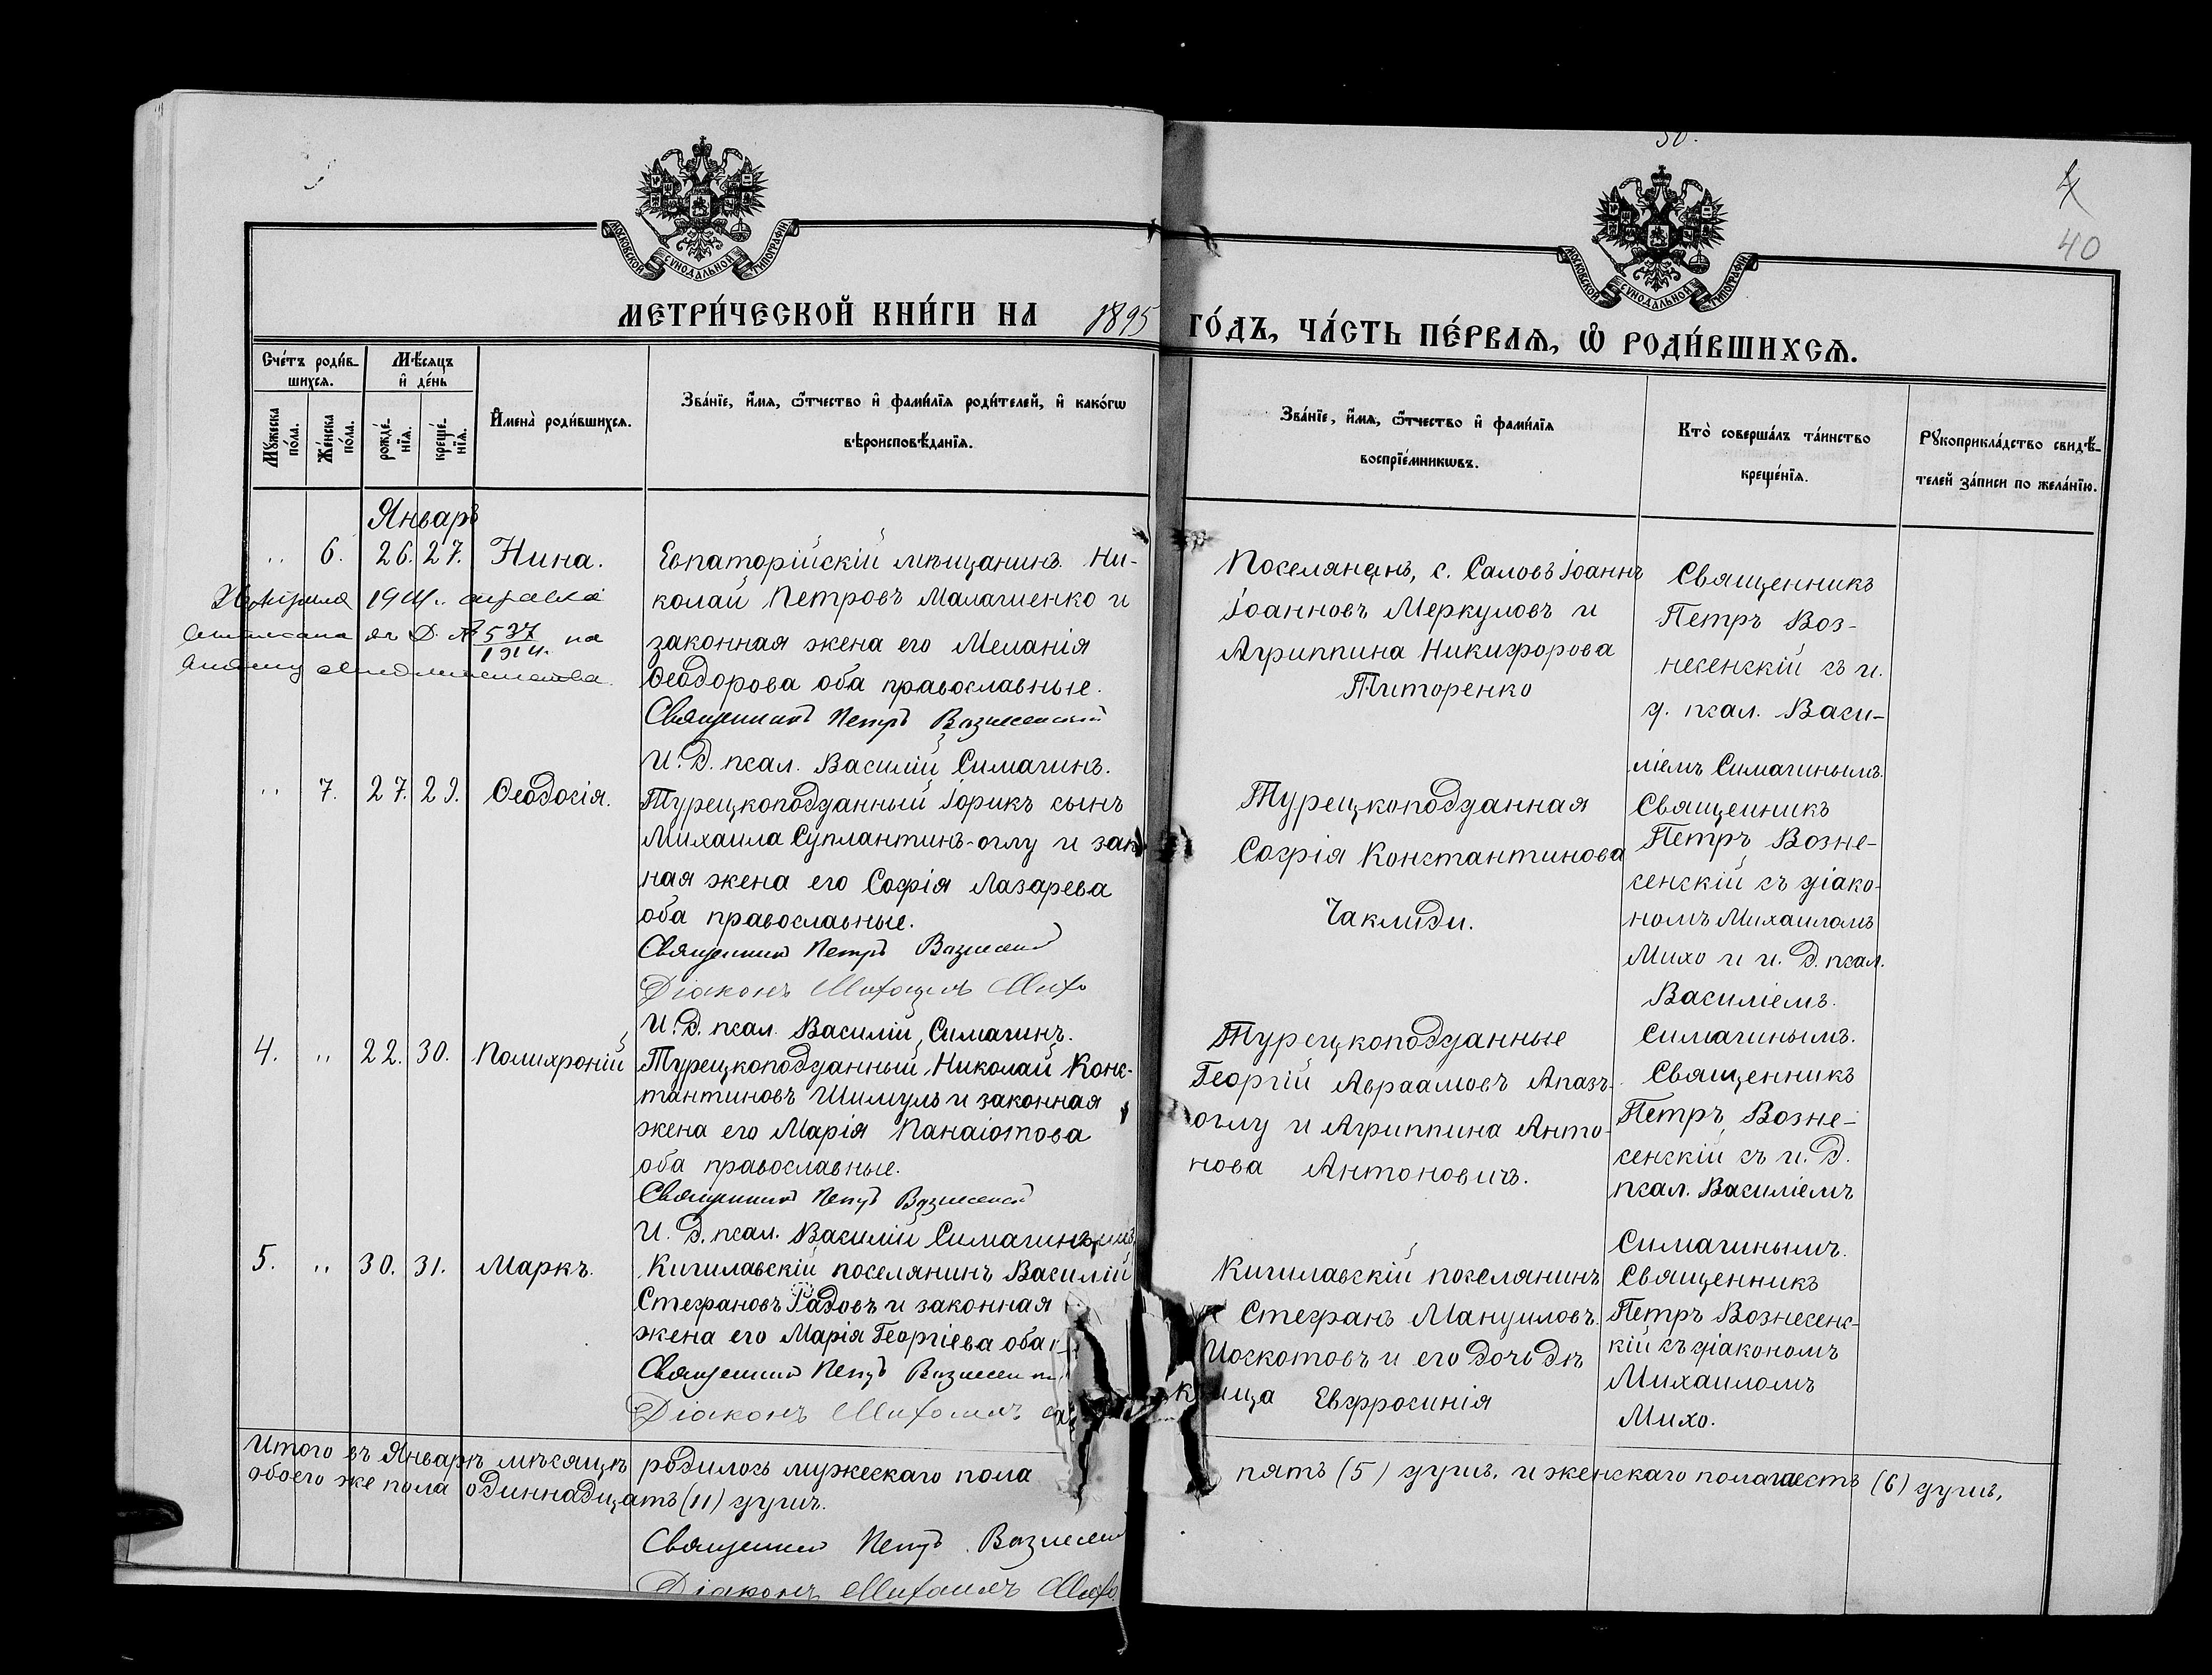 50.
4
40
МОСКОВСКОЙ СѴНОДАЛЬНОЙ ТИПОГРАФІИ
МОСКОВСКОЙ СѴНОДАЛЬНОЙ ТИПОГРАФІИ
МЕТРИ́ЧЕСКОЙ КНИ́ГИ НА 1895 ГО́ДЪ, ЧА́СТЬ ПЕ́РВАѦ, Ѡ҆ РОДИ́ВШИХСѦ.
Сче́тъ роди́в-
шихсѧ.
Мꙋ́жеска
по́ла.
Же́нска
по́ла.
Мѣ́сѧцъ
и҆ де́нь
рожде́-
нїѧ.
креще́-
нїѧ.
И҆мена̀ роди́вшихсѧ.
Зва́нїе, и҆́мѧ, ѻ҆́тчество и҆ фами́лїѧ роди́телей, и҆ како́гѡ
вѣроисповѣ́данїѧ.
Зва́нїе, и҆́мѧ, ѻ҆́тчество и҆ фами́лїѧ
воспрїе́мникѡвъ.
Кто̀ соверша́лъ та́инство
креще́нїѧ.
Рꙋкоприкла́дство свидѣ́-
телей за́писи по жела́нїю.
Январь
„ 6. 26. 27. Нина.
Евпаторійскій мѣщанинъ Ни-
колай Петровъ Малашенко и
законная жена его Меланія
Ѳеодорова оба православные.
Священникъ Петръ Вознесенскій
И. Д. псал. Василій Симагинъ.
Поселянинъ, с. Саловъ Іоаннъ
Іоанновъ Меркуловъ и
Агриппина Никифорова
Титоренко
Священникъ
Петръ Воз-
несенскій съ и.
д. псал. Васи-
ліемъ Симагинымъ.
1914 г. справка
въ Д. № 537 на
1914.
„ 7. 27. 29. Ѳеодосія.
Турецкоподданный Іорикъ сынъ
Михаила Суплантинъ-оглу и зак
ная жена его Софія Лазарева
оба православные.
Священникъ Петръ Вознесенскій
Діаконъ Михаилъ Михо
И. Д. псал. Василій Симагинъ.
Турецкоподданная
Софія Константинова
Чаклиди.
Священникъ
Петръ Возне-
сенскій съ діако-
номъ Михаиломъ
Михо и и. д. псал.
Василіемъ.
Симагинымъ.
4. „ 22. 30. Полихроній
Турецкоподданный Николай Конс-
тантиновъ Шимуль и законная
жена его Марія Панаіотова
оба православные.
Священникъ Петръ Вознесенскій
И. Д. псал. Василій Симагинъ
Турецкоподданные
Георгій Авраамовъ Апазъ-
оглу и Агриппина Анто-
нова Антоновичъ.
Священникъ
Петръ Возне-
сенскій съ и. д.
псал. Василіемъ
Симагинымъ.
5. „ 30. 31. Маркъ.
Кишлавскій поселянинъ Василій
Стефановъ Гадовъ и законная
жена его Марія Георгіева оба п
Священникъ Петръ Вознесен
Діаконъ Михаилъ
Кишлавскій поселянинъ
Стефанъ Мануиловъ
Москотовъ и его дочь дѣ
ица Евфросинія
Священникъ
Петръ Вознесенс-
кій съ діакономъ
Михаиломъ
Михо.
Итого въ Январѣ мѣсяцѣ родилось мужескаго пола пять (5) душъ, и женскаго пола шесть (6) душъ,
обоего же пола одиннадцать (11) душъ.
Священникъ Петръ Вознесенскій
Діаконъ Михаилъ Михо.